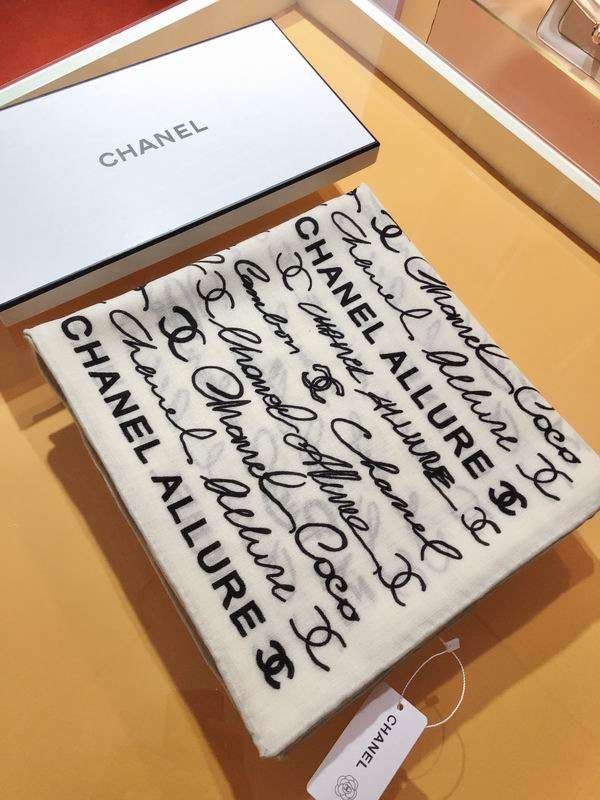 CHANEL
CHANEL ALLURE
Chanel Allure
Chanel Coco
Chanel Allure
Cambon Chanel
CHANEL ALLURE
CHANEL ALLURE
Chanel Allure
Chanel Coco
CHANEL